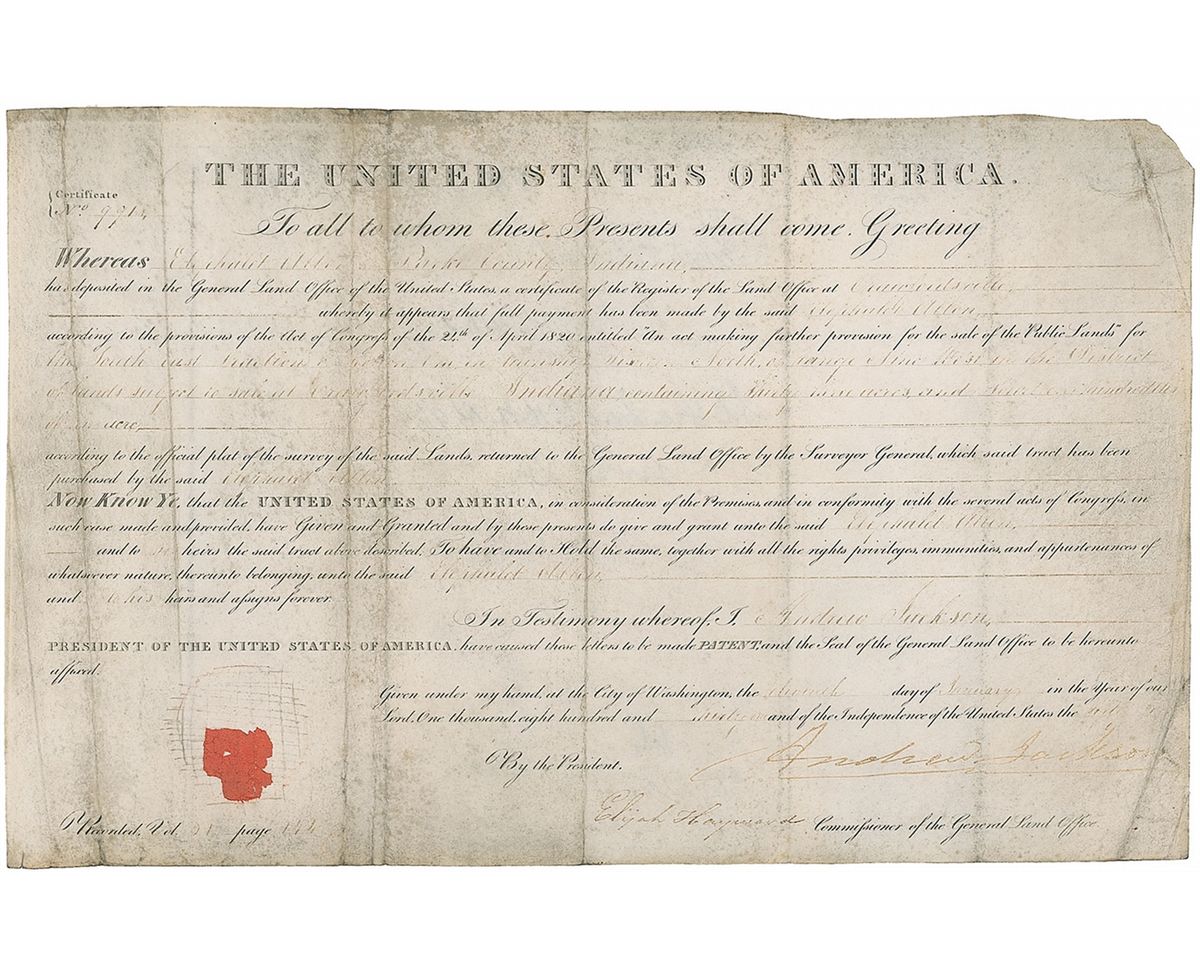 THE UNITED STATES OF AMERICA.
Certificate
No.
To all to whom these Presents shall come, Greeting
Whereas County, Indiana,
has deposited in the General Land Office of the United States, a certificate of the Register of the Land Office at Crawfordsville,
whereby it appears that full payment has been made by the said
according to the provisions of the Act of Congress of the 24th of April 1820 entitled "An act making further provision for the sale of the Public Lands" for
the South east North, of range Nine West in the District
of lands subject to sale at Crawfordsville Indiana containing acres and hundredths
of an acre,
according to the official plat of the survey of the said Lands, returned to the General Land Office by the Surveyor General, which said tract has been
purchased by the said
Now Know Ye, that the UNITED STATES OF AMERICA, in consideration of the Premises, and in conformity with the several acts of Congress, in
such case made and provided, have Given and Granted and by these presents do give and grant unto the said
and to heirs the said tract above described. To have and to Hold the same, together with all the rights privileges, immunities, and appurtenances of
whatsoever nature, thereunto belonging, unto the said
and to his heirs and assigns forever.
In Testimony whereof, I, Andrew Jackson,
PRESIDENT OF THE UNITED STATES OF AMERICA, have caused these letters to be made PATENT, and the Seal of the General Land Office to be hereunto
affixed.
Given under my hand, at the City of Washington, the day of January in the Year of our
Lord, One thousand, eight hundred and and of the Independence of the United States the
Andrew Jackson
By the President.
Elijah Hayward Commissioner of the General Land Office.
Recorded, Vol. page